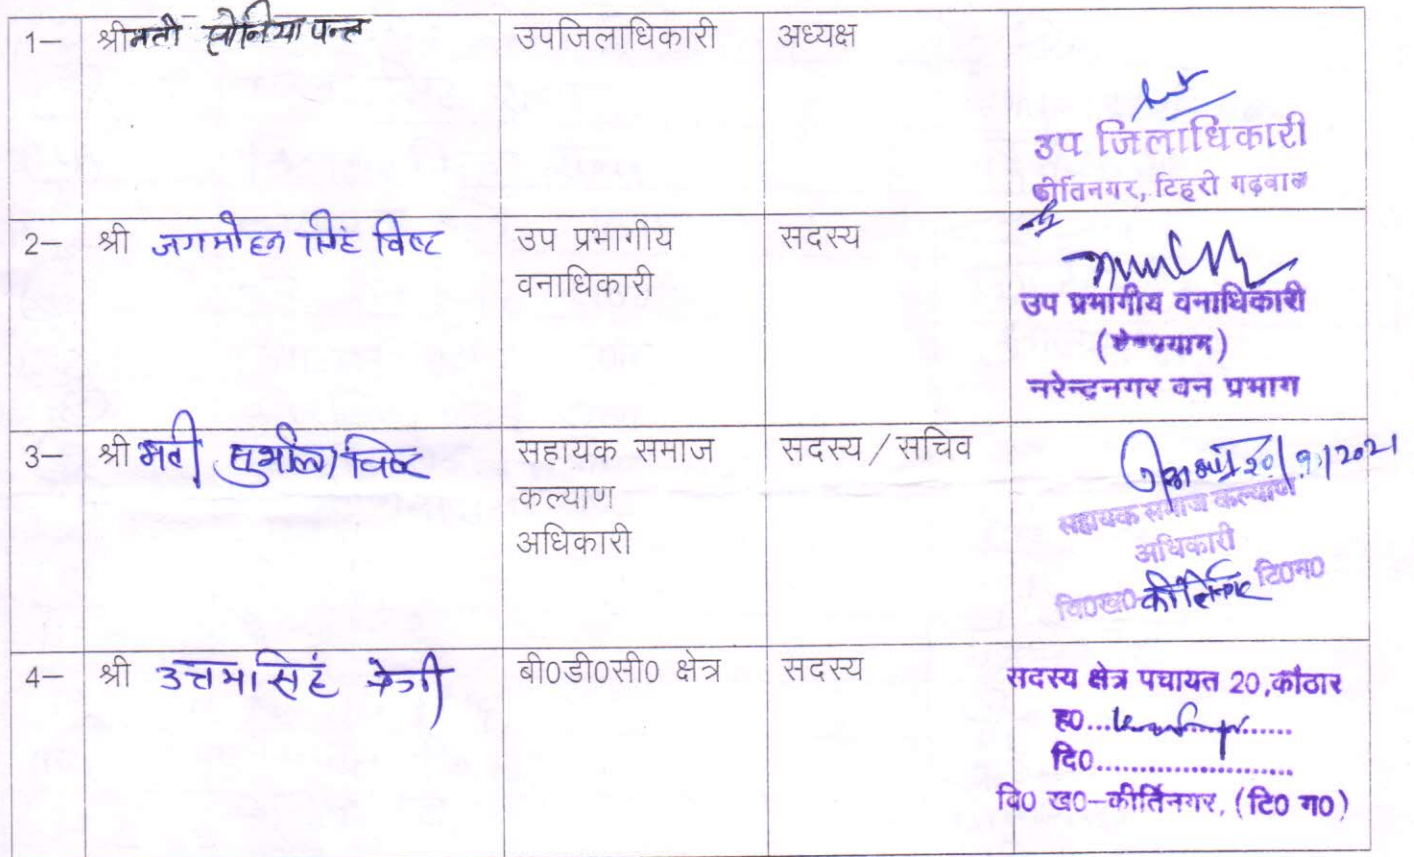 1— श्रीमती सोनिया पन्त उपजिलाधिकारी अध्यक्ष
उप जिलाधिकारी
कीर्तिनगर, टिहरी गढ़वाल
2— श्री जगमोहन सिंह बिष्ट उप प्रभागीय सदस्य
वनाधिकारी
उप प्रभागीय वनाधिकारी
नरेन्द्रनगर वन प्रभाग
3— श्रीमती सुशीला बिष्ट सहायक समाज सदस्य / सचिव
कल्याण
अधिकारी
2021
सहायक समाज कल्याण
अधिकारी
वि0ख0-कीर्तिनगर टि0ग0
4— श्री उत्तम सिंह नेगी बी0डी0सी0 क्षेत्र सदस्य
सदस्य क्षेत्र पचायत 20,कौठार
ह0..............
दि0.......................
वि0 ख0–कीर्तिनगर, (टि0 ग0)